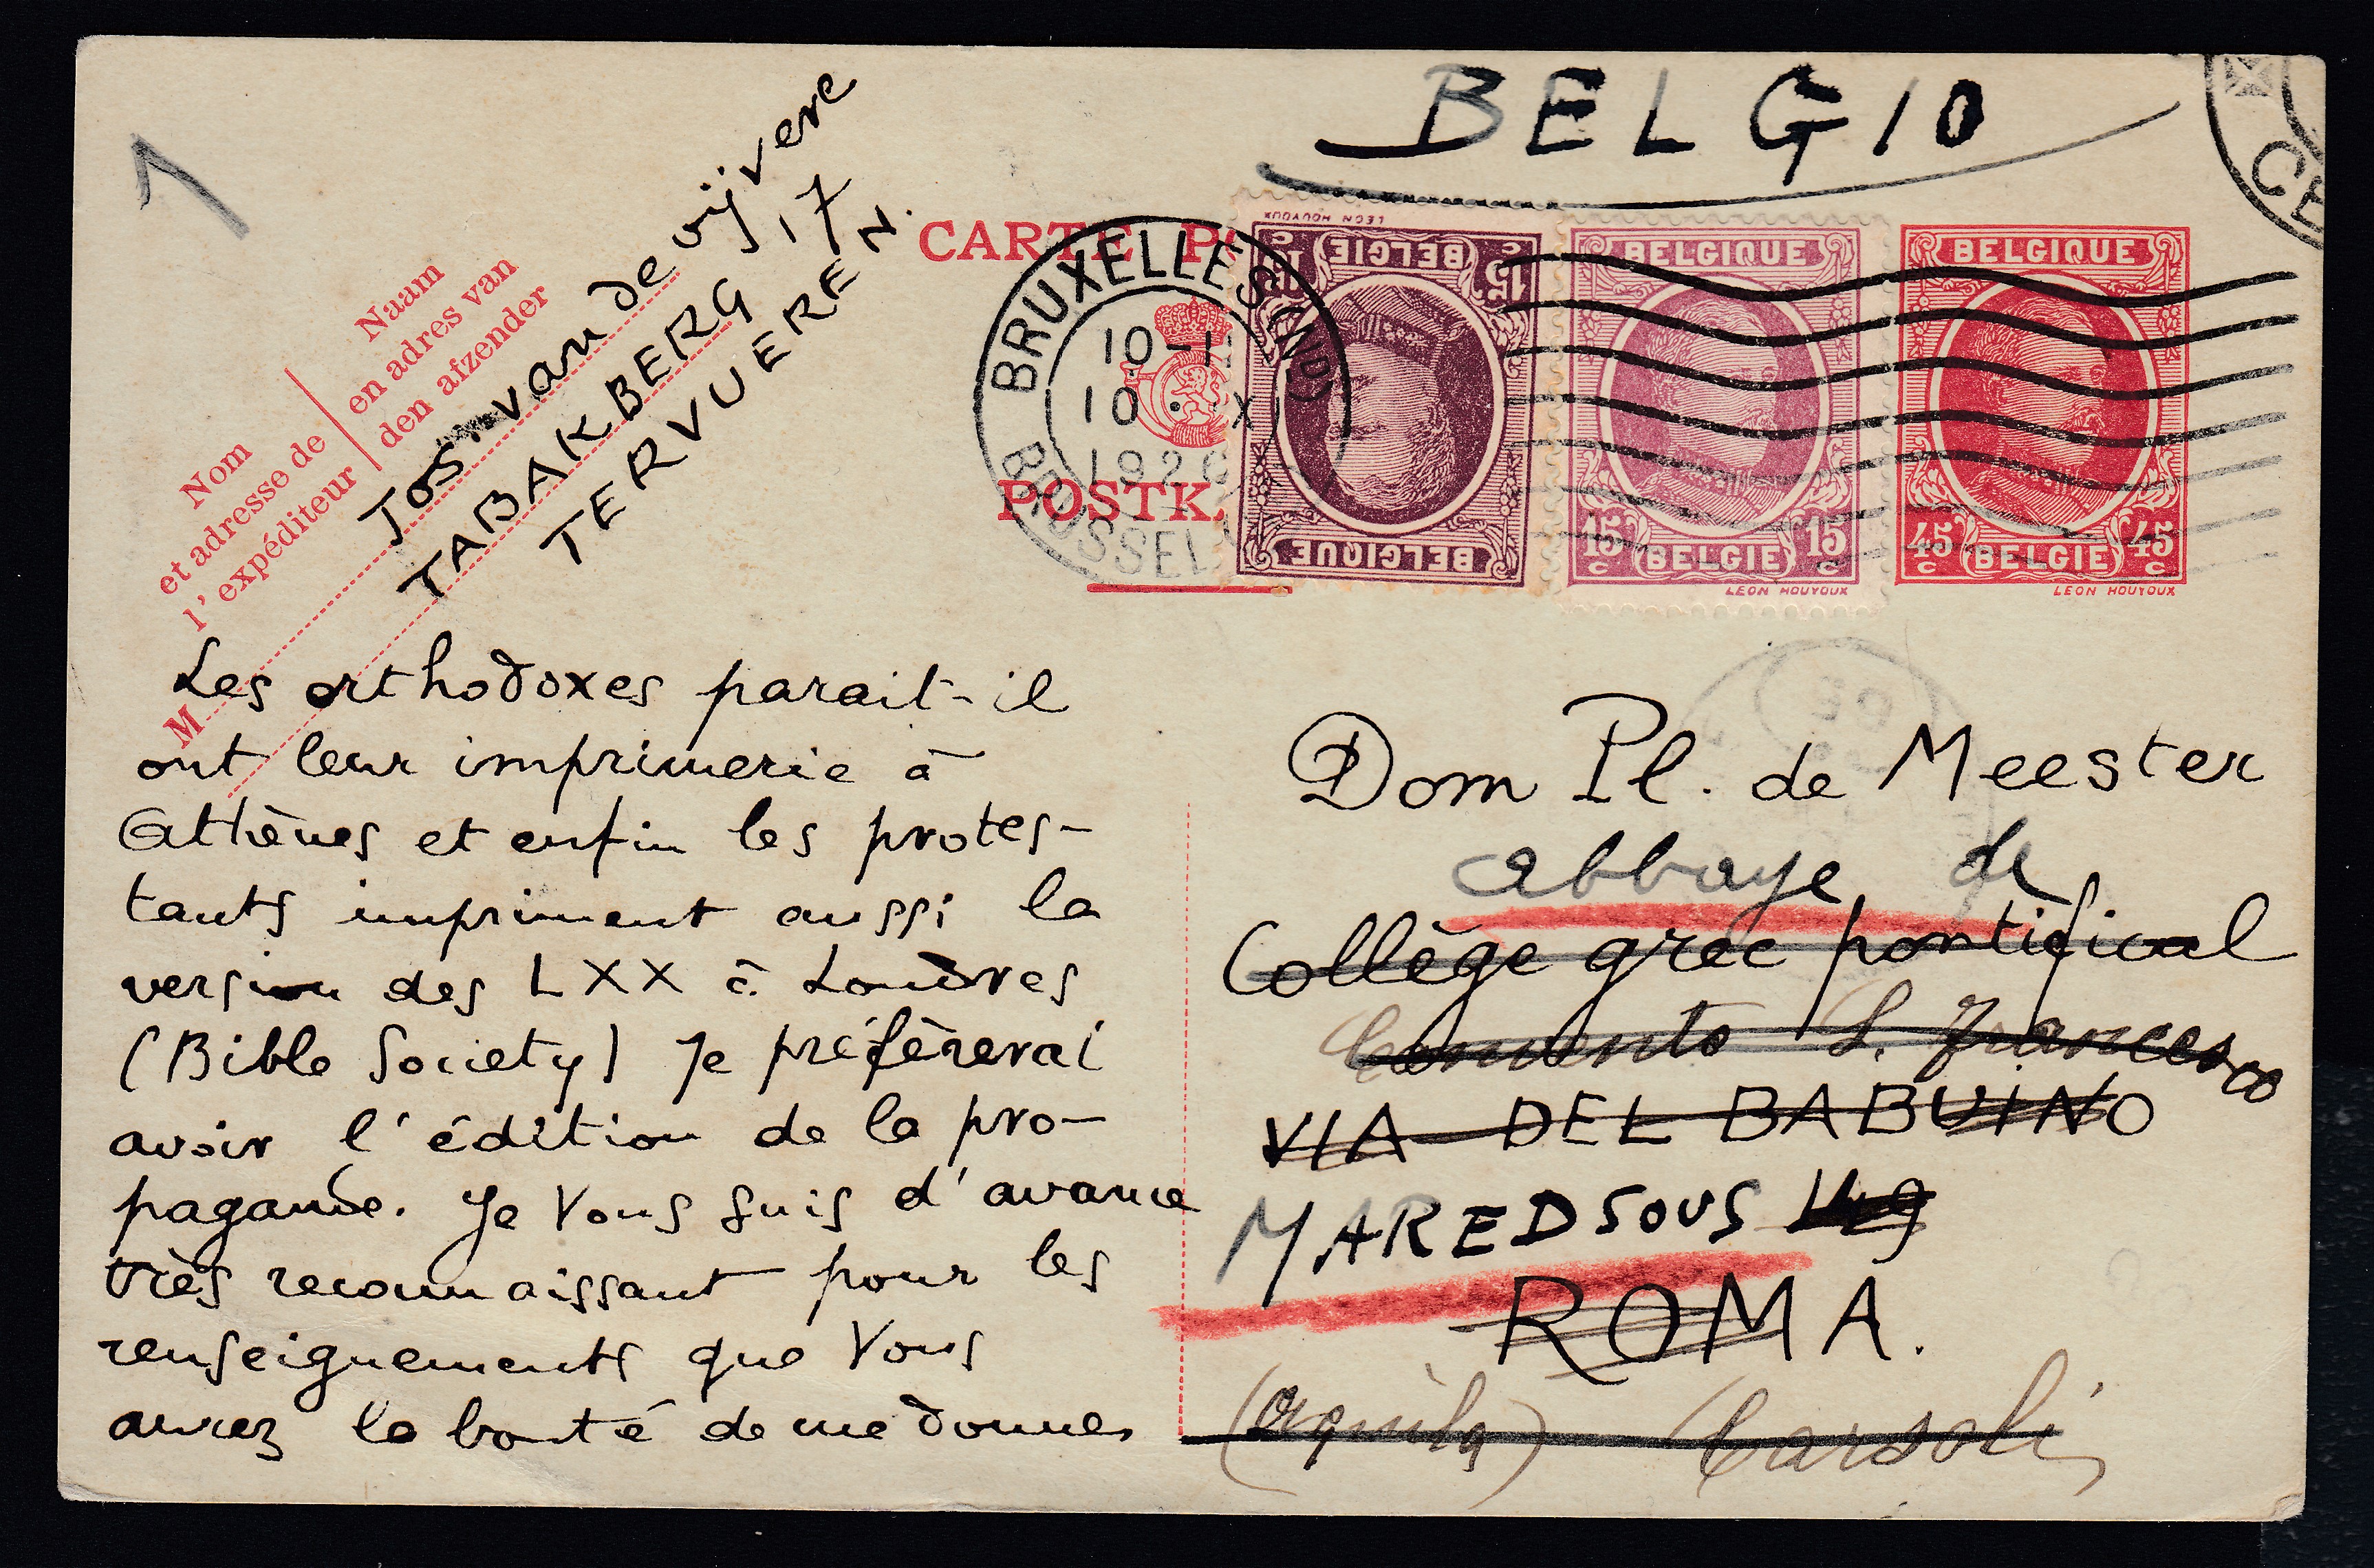 BELGIO
CE
Naam
en adres van
den afzender
Nom
et adresse de
l'expéditeur
M
Jos. van de vijvere
TABAKBERG 17
TERVUEREN.
CARTE P
POSTK
BRUXELLES (ND)
10-1
10 · X
1926
BRUSSEL
LEON HOUYOUX
15 c BELGIE 15 c
BELGIQUE
BELGIQUE
15 c BELGIE 15 c
LEON HOUYOUX
BELGIQUE
45 c BELGIE 45 c
LEON HOUYOUX
Les orthodoxes parait-il
ont leur imprimerie à
Athènes et enfin les protes-
tants impriment aussi la
version des LXX à Londres
(Bible Society) Je préfèrerai
avoir l'édition de la pro-
pagande. Je Vous suis d'avance
très reconnaissant pour les
renseignements que Vous
aurez la bonté de me donner
DE
Dom Pl. de Meester
abbaye de
Collège grec pontifical
Convento S. Francesco
VIA DEL BABUINO
MAREDSOUS 149
ROMA.
(Aquila) Carsoli